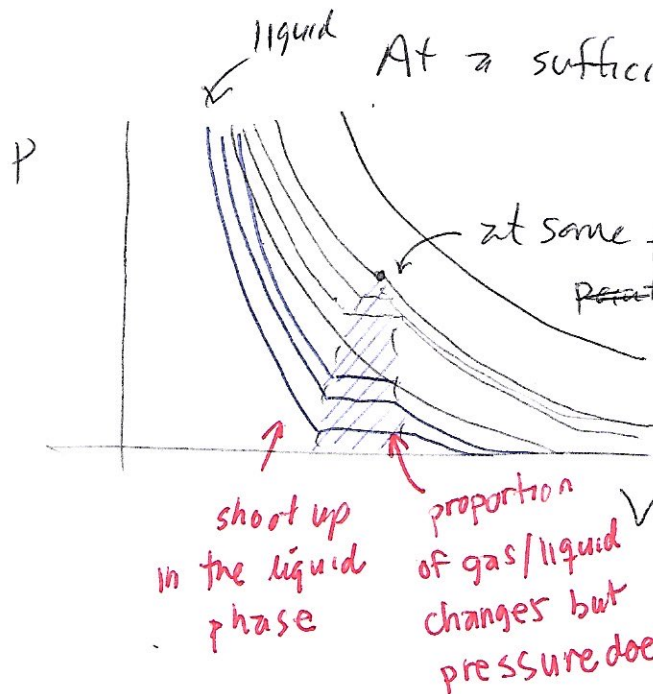 liquid
At a suffici
P
at some
shoot up
in the liquid
phase
proportion
of gas/liquid
changes but
pressure doe
V